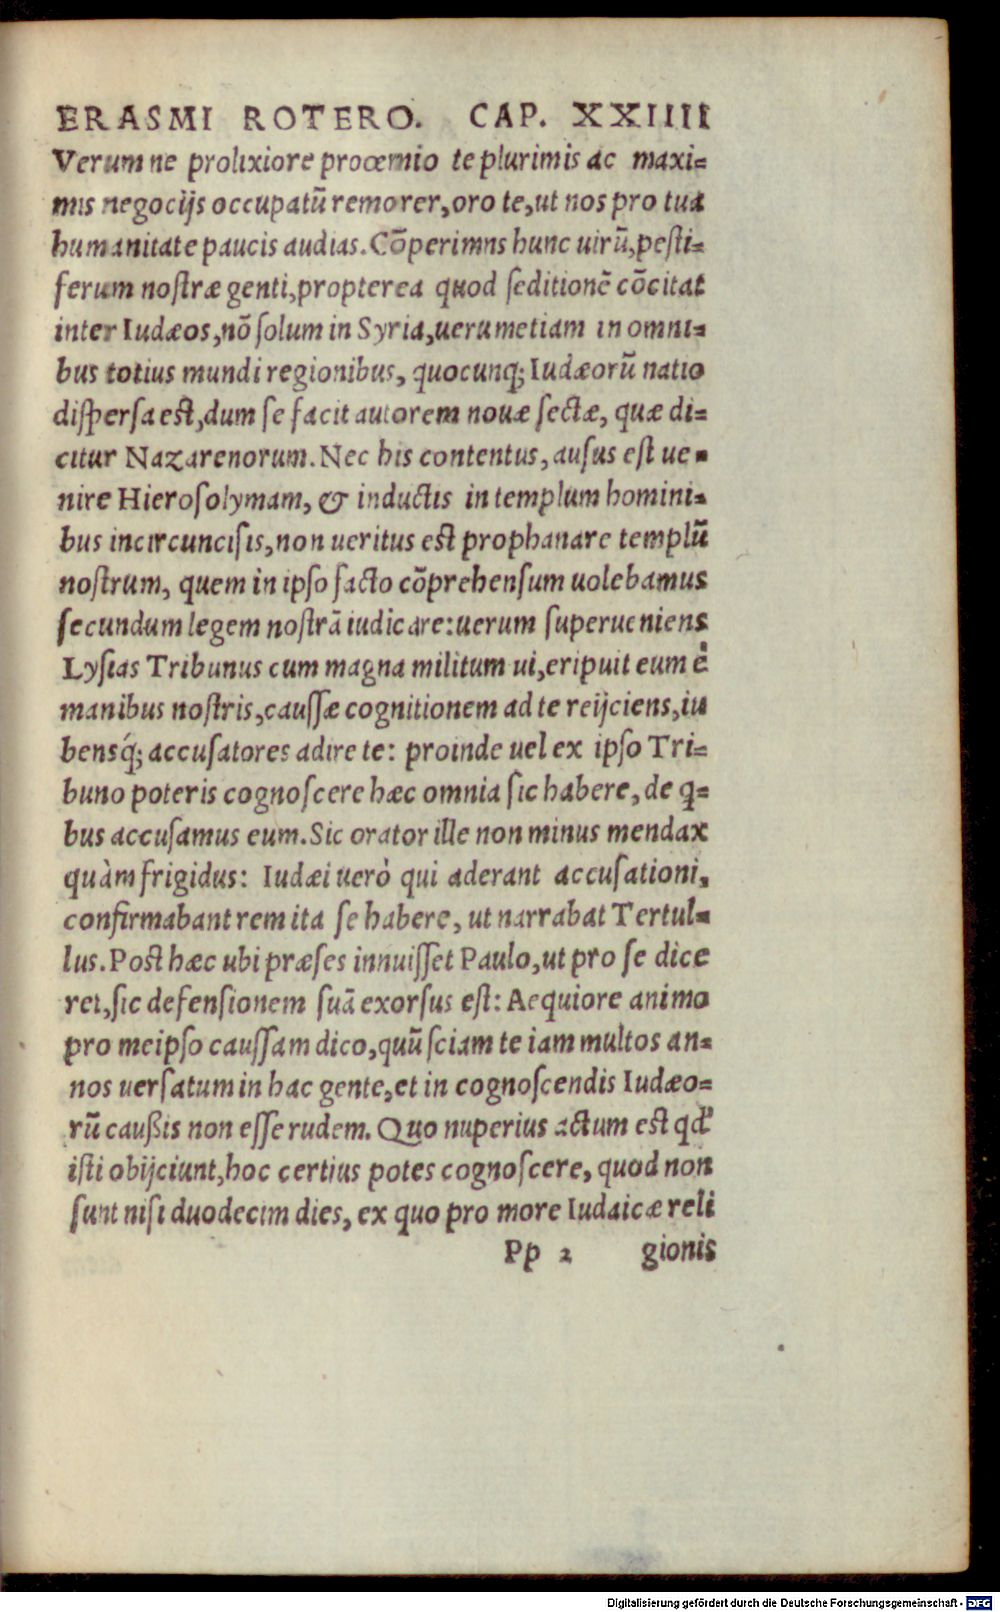 ERASMI ROTERO. CAP. XXIIII
Verum ne prolixiore proœmio te plurimis ac maxi=
mis negocijs occupatũ remorer, oro te, ut nos pro tua
humanitate paucis audias. Cõperimus hunc uirũ, pesti=
ferum nostræ genti, propterea quod seditionẽ cõcitat
inter Iudæos, nõ solum in Syria, uerumetiam in omni=
bus totius mundi regionibus, quocunq; Iudæorũ natio
dispersa est, dum se facit autorem nouæ sectæ, quæ di=
citur Nazarenorum. Nec his contentus, ausus est ue=
nire Hierosolymam, & inductis in templum homini=
bus incircuncisis, non ueritus est prophanare templũ
nostrum, quem in ipso facto cõprehensum uolebamus
secundum legem nostrã iudicare: uerum superueniens
Lysias Tribunus cum magna militum ui, eripuit eum è
manibus nostris, caussæ cognitionem ad te reijciens, iu
bensq́; accusatores adire te: proinde uel ex ipso Tri=
buno poteris cognoscere hæc omnia sic habere, de q=
bus accusamus eum. Sic orator ille non minus mendax
quàm frigidus: Iudæi uerò qui aderant accusationi,
confirmabant rem ita se habere, ut narrabat Tertul=
lus. Post hæc ubi præses innuisset Paulo, ut pro se dice
ret, sic defensionem suã exorsus est: Aequiore animo
pro meipso caussam dico, quũ sciam te iam multos an=
nos uersatum in hac gente, et in cognoscendis Iudæo=
rũ caußis non esse rudem. Quo nuperius actum est qd'
isti obijciunt, hoc certius potes cognoscere, quod non
sunt nisi duodecim dies, ex quo pro more Iudaicæ reli
Pp 2 gionis
Digitalisierung gefördert durch die Deutsche Forschungsgemeinschaft - DFG